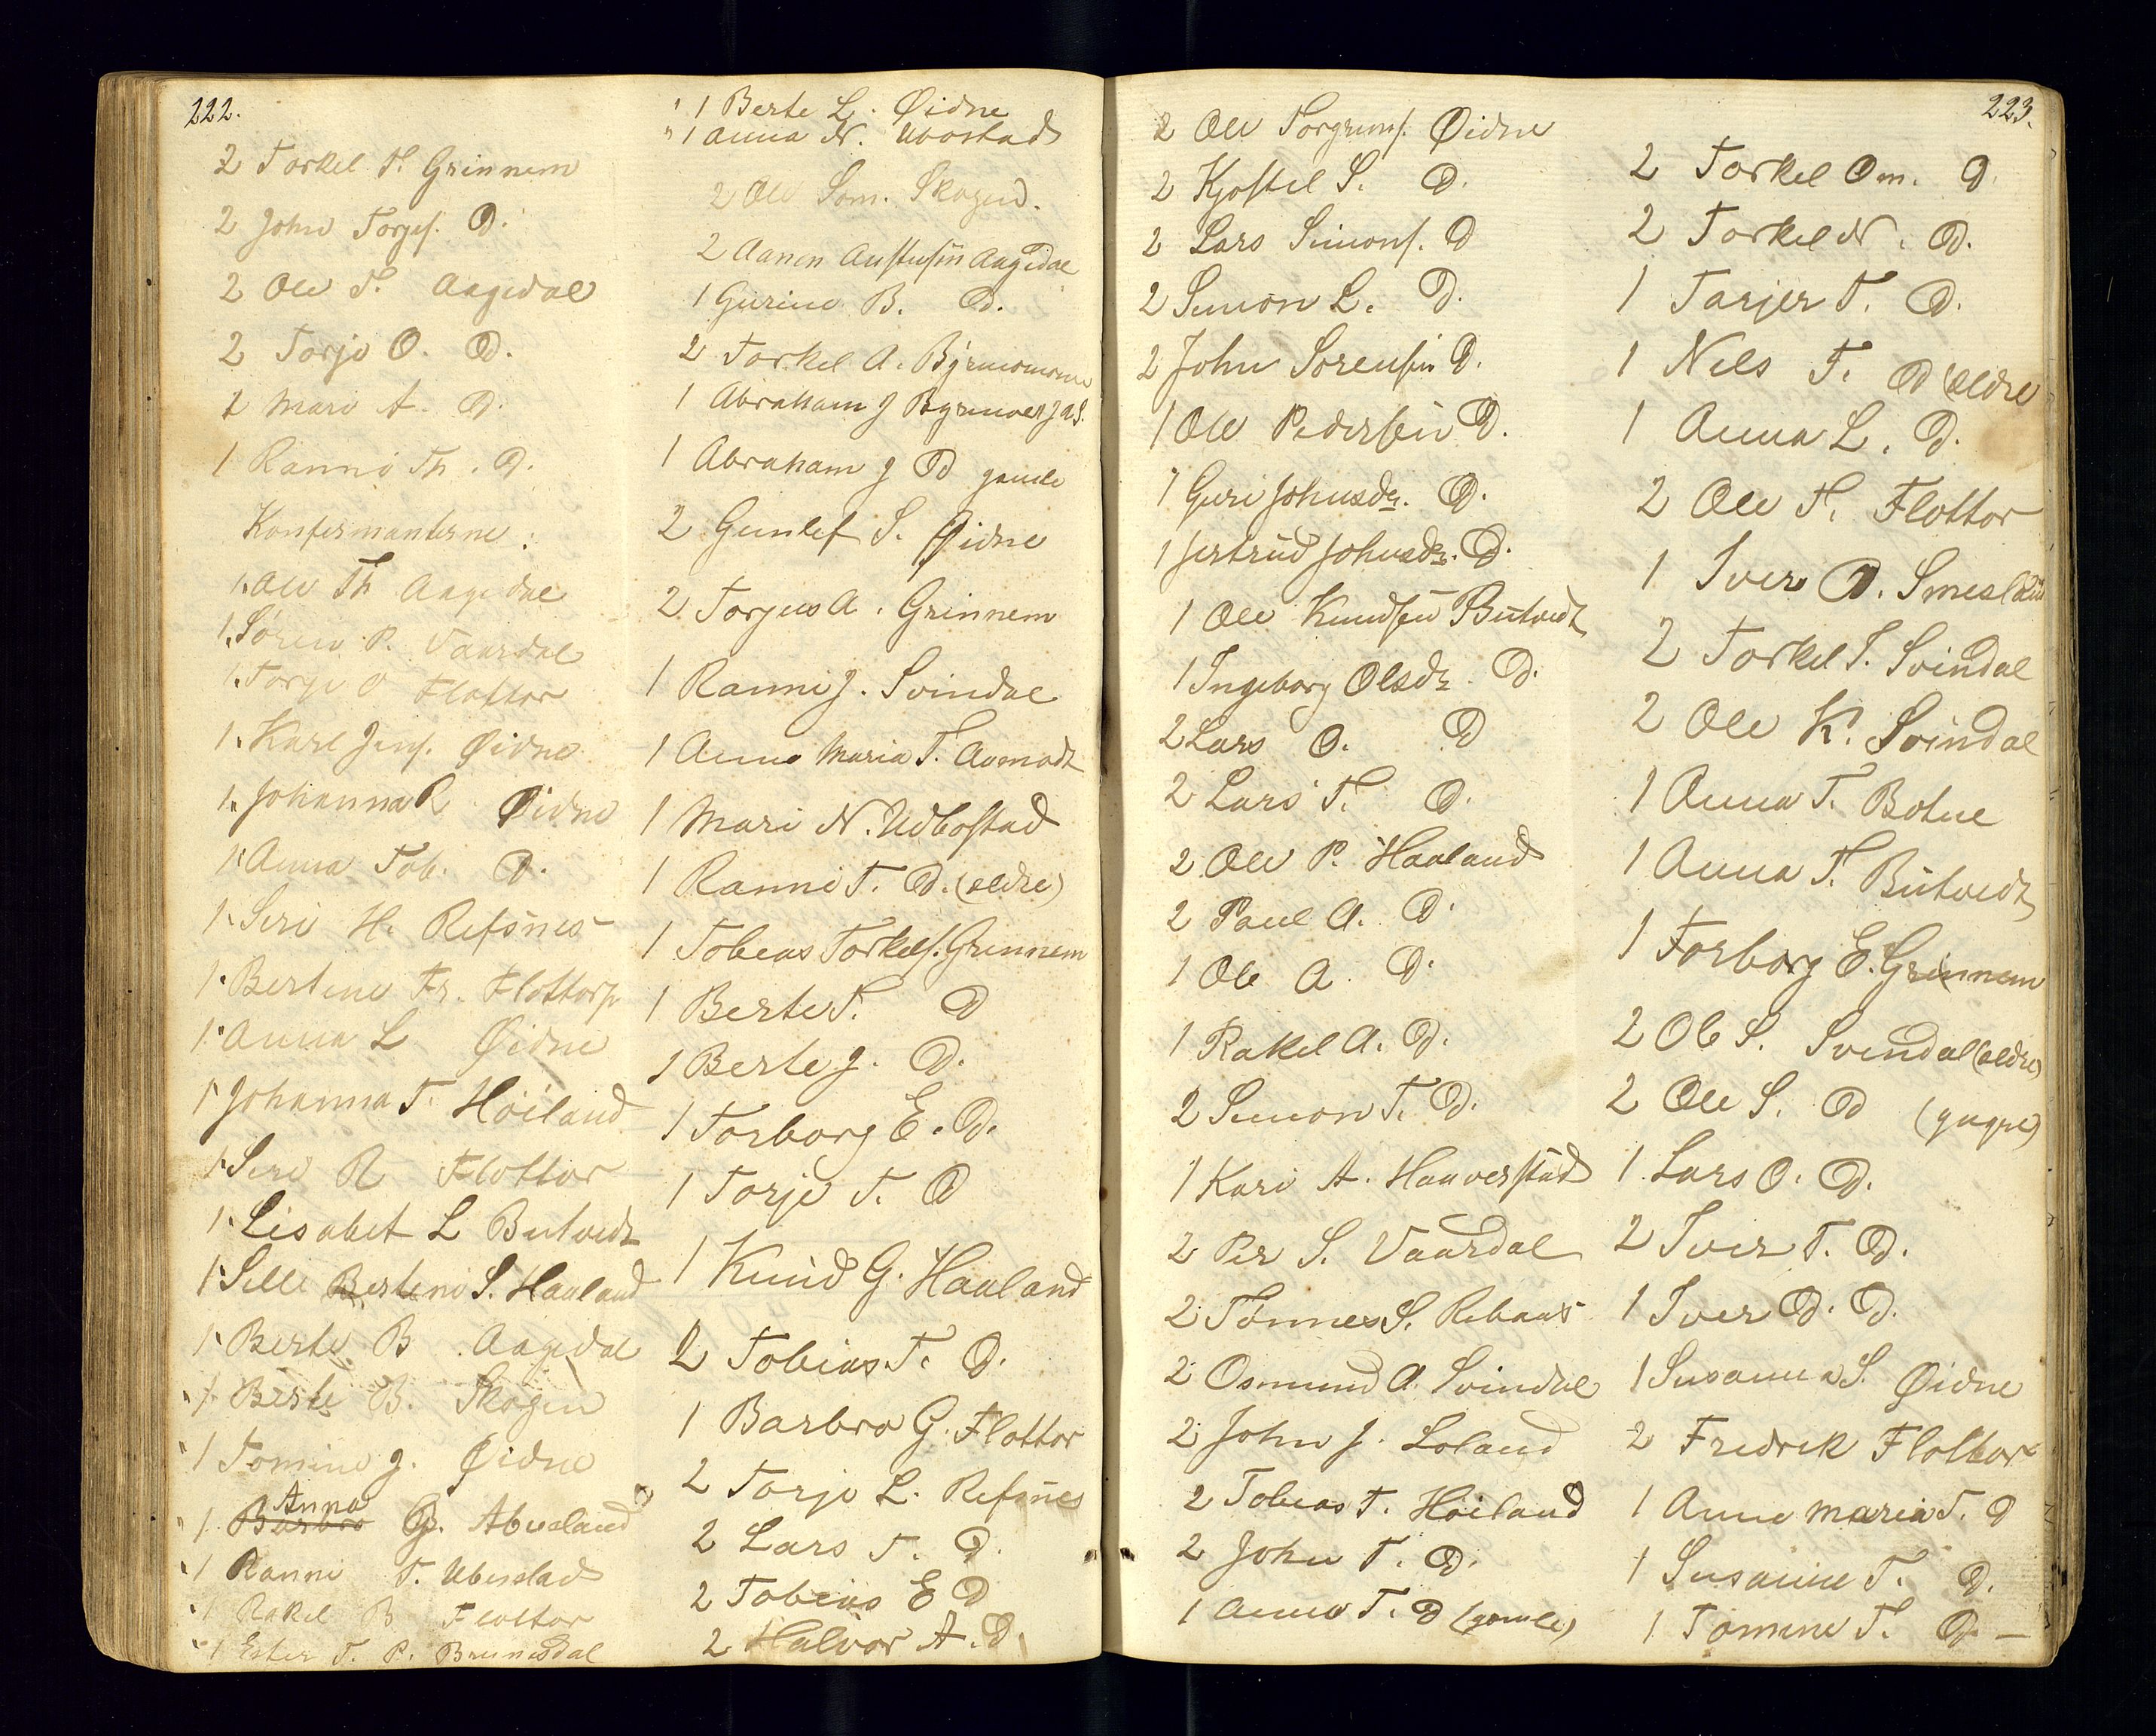 222.
2 Torkel T. Grinnem
2 John Torjes. D.
2 Ole T. Aagedal
2 Torje O. D.
1 Mari A. D.
1 Ranni Th. D.
Konfermanterne:
1. Ole Th Aagedal
1. Sören P. Vaardal
1. Torje O Flottor
1. Karl Jens. Øidne
1. Johanna R Øidne
1. Anna Tob. D.
1. Seri H. Refsnes
1. Bertine Fr. Flottorp
1. Anna L Øidne
1. Johanna T. Höiland
1. Seri R Flottor
1. Lisabet L Butvedt
1. Selle Berteni S. Haaland
1. Berte B. Aagedal
1. Berte B. Skogen
1 Tomine J. Øidne
Anna
1. Barbro G. Abusland
1 Ranni T. Ubustad
1 Rakel B Flottor
1 Ester T. P. Brunesdal
1 Berte L. Øidne
1 Anna N. Ubostad
2 Ole Som. Skogen.
2 Aanen Austusen Aagedal
1 Gurine B. D.
2 Torkel A.
1 Abraham J
1 Abraham J D gamle
2 Gunlef S. Øidne
2 Torjus A. Grinnem
1 Ranni J. Svindal
1 Anne Maria T. Aamodt
1 Mari N. Udbostad
1 Ranni T. D. (eldre)
1 Tobeas Torkels. Grinnem
1 Berte T. D
1 Berte J. D.
1 Torborg E. D.
1 Torje T. D
1 Knud G. Haaland
2 Tobias T. D.
1 Barbro G. Flottor
2 Torje L. Refsnes
2 Lars T. D.
2 Tobias E D
2 Halvor A. D.
223.
2 Ole Torgrims. Øidne
2 Kjostel S. D.
2 Lars Simons. D
2 Simon L. D.
2 John Sorensen D.
1 Ole Pedersen D.
1 Guri Johnsdr. D.
1 Jertrud Johnsdr. D.
1 Ole Knudsen Butvedt
1 Ingeborg Olsdr. D.
2 Lars O. D
2 Lars T. D.
2 Ole P. Haaland
2 Paul A. D.
1 Ole A. D.
1 Rakel A. D.
2 Simon T. D.
1 Kari A. Haaverstad
2 Per S. Vaardal
2 Tönnes S. Rebaas
2 Osmund A. Svindal
2 John J. Loland
2 Tobias T. Höiland
2 John T. D.
1 Anna T. D (gamle)
2 Torkel Om. D.
2 Torkel N. D.
1 Tarjer T. D.
1 Nels T. D (eldre
1 Anna L. D.
2 Ole T. Flottor
1 Iver D.
2 Torkel T. Svindal
2 Ole K. Svindal
1 Anna T. Botne
1 Anna T. Butvedt
1 Torborg E. Grinnem
2 Ole S. Svendal (eldre)
2 Ole S. D (yngre)
1 Lars O. D.
2 Iver T. D.
1 Iver D. D.
1 Susanna S. Øidne
2 Fredrek Flottor
1 Anne Maria T. D
1 Susanne T. D.
1 Tomine T. D. —